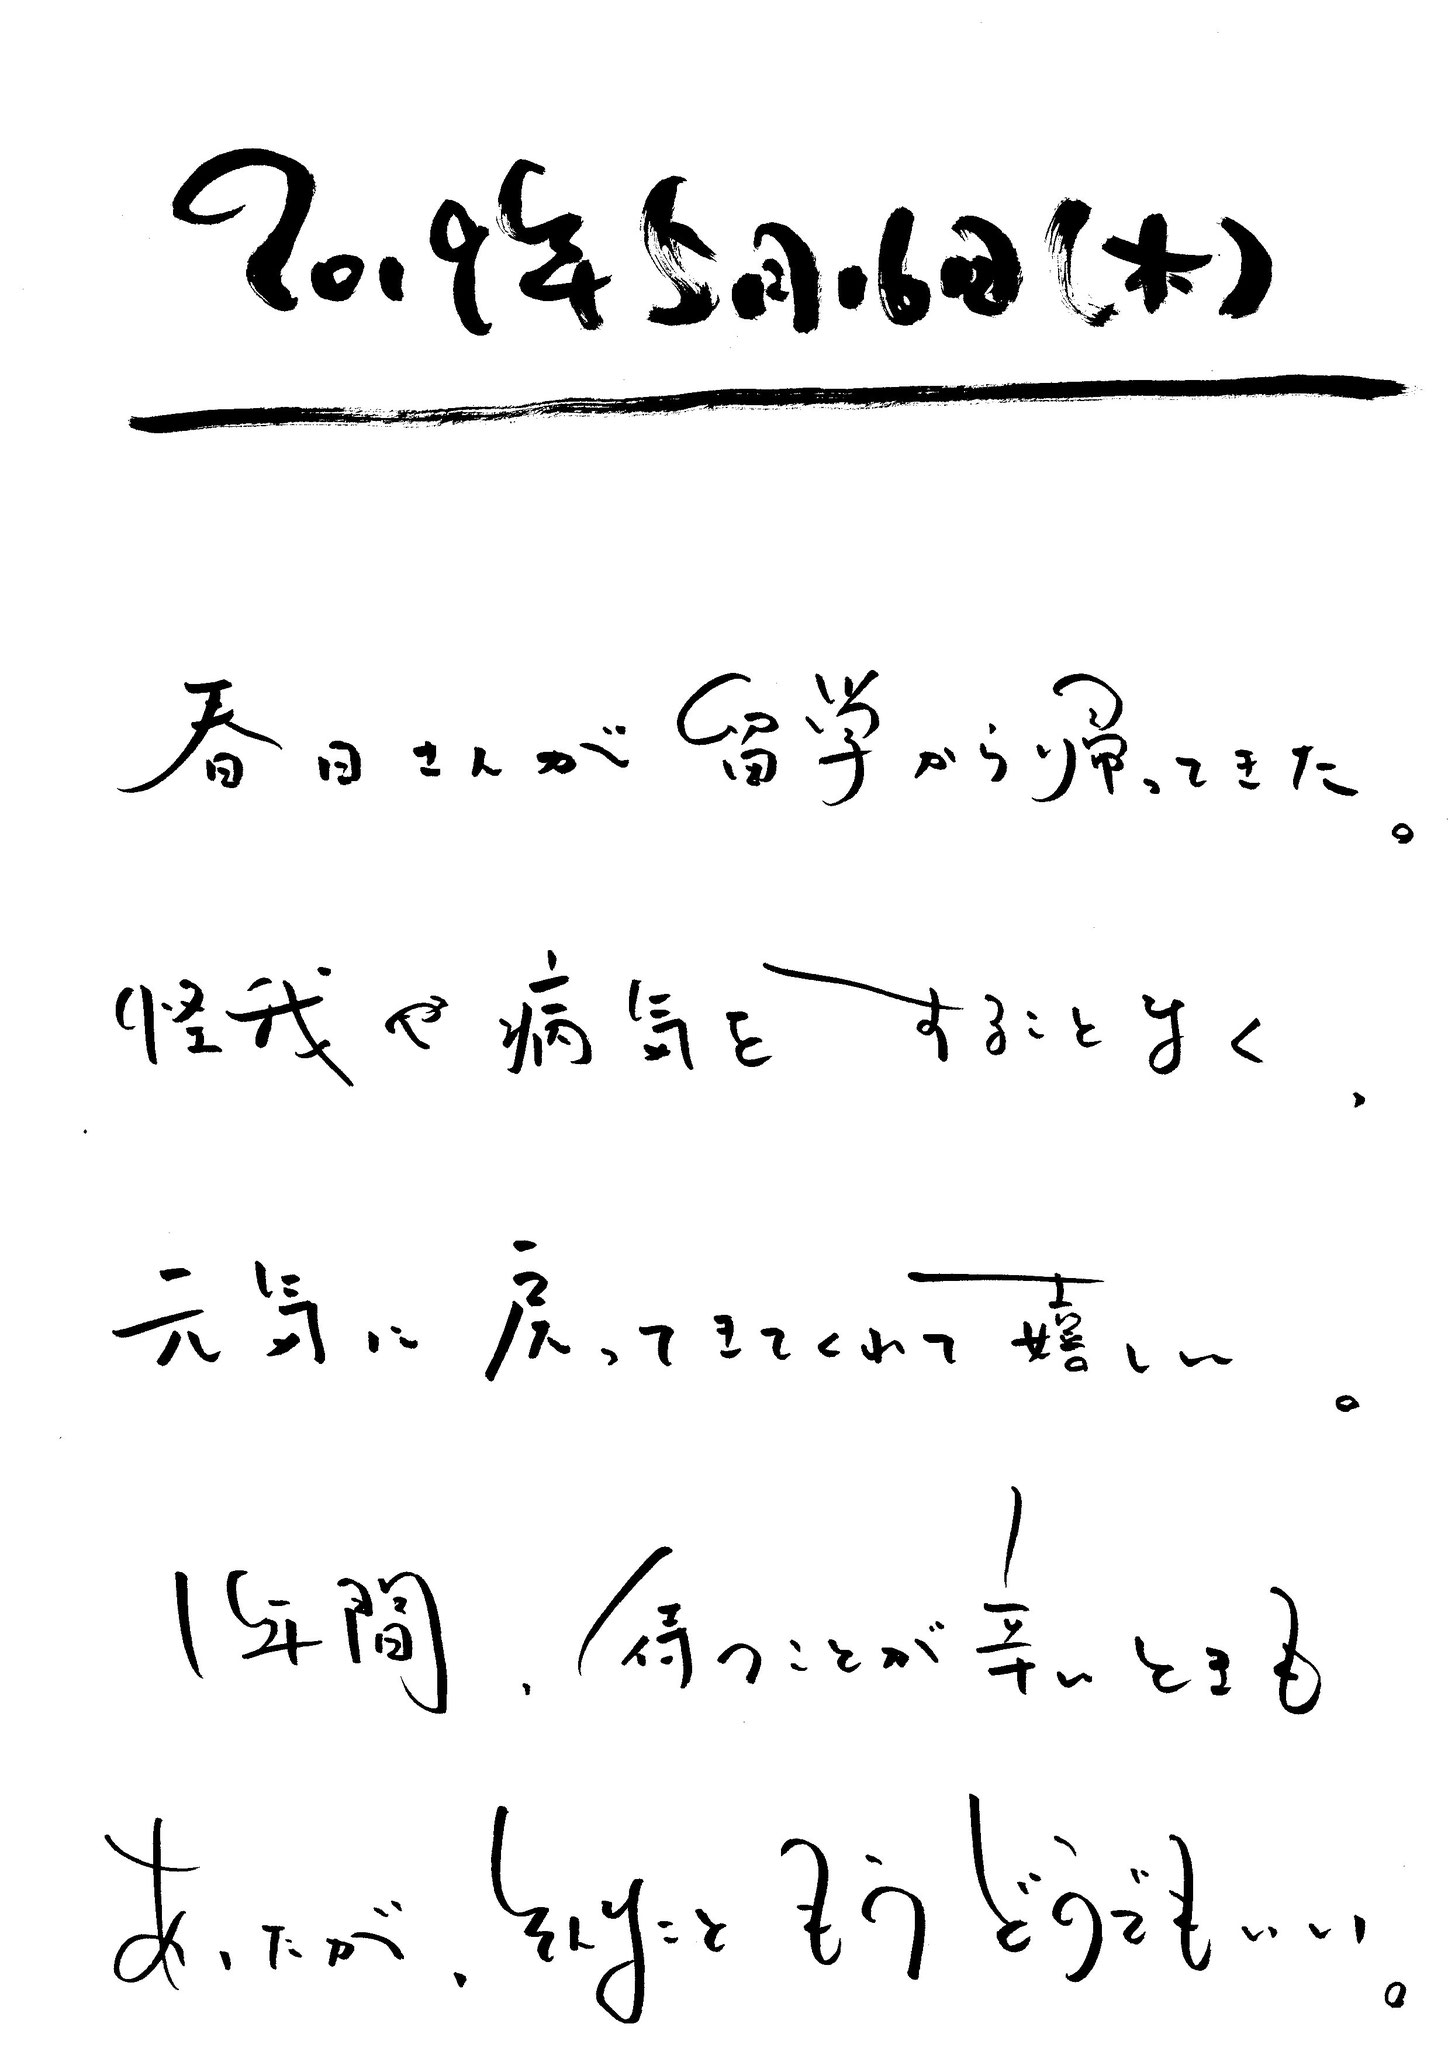 2019年5月16日(木)
春日さんが留学から帰ってきた。
怪我や病気をすることなく、
元気に戻ってきてくれて嬉しい。
1年間、待つことが辛いときも
あったが、そんなこともうどうでもいい。